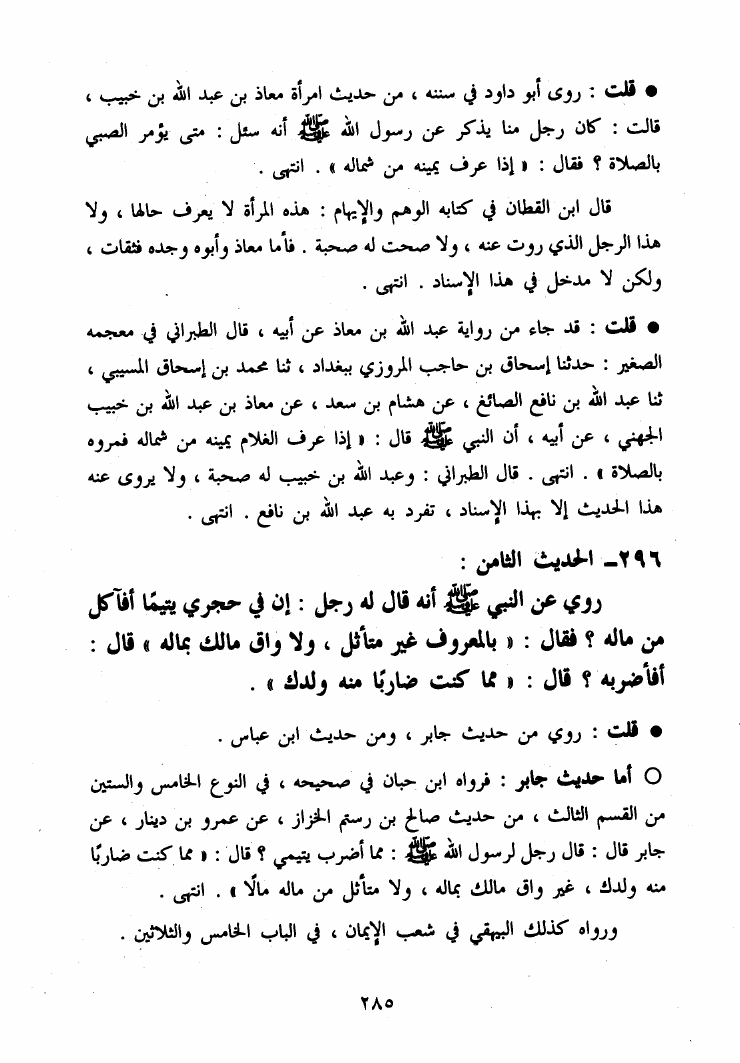 ● قلت : روى أبو داود في سننه ، من حديث امرأة معاذ بن عبد الله بن خبيب ،
قالت : كان رجل منا يذكر عن رسول الله ﷺ أنه سئل : متى يؤمر الصبي
بالصلاة ؟ فقال : « إذا عرف يمينه من شماله » . انتهى .
قال ابن القطان في كتابه الوهم والإيهام : هذه المرأة لا يعرف حالها ، ولا
هذا الرجل الذي روت عنه ، ولا صحت له صحبة . فأما معاذ وأبوه وجده فثقات ،
ولكن لا مدخل في هذا الإسناد . انتهى .
● قلت : قد جاء من رواية عبد الله بن معاذ عن أبيه ، قال الطبراني في معجمه
الصغير : حدثنا إسحاق بن حاجب المروزي ببغداد ، ثنا محمد بن إسحاق المسيبي ،
ثنا عبد الله بن نافع الصائغ ، عن هشام بن سعد ، عن معاذ بن عبد الله بن خبيب
الجهني ، عن أبيه ، أن النبي ﷺ قال : « إذا عرف الغلام يمينه من شماله فمروه
بالصلاة » . انتهى . قال الطبراني : وعبد الله بن خبيب له صحبة ، ولا يروى عنه
هذا الحديث إلا بهذا الإسناد ، تفرد به عبد الله بن نافع . انتهى .
٢٩٦ـ الحديث الثامن :
روي عن النبي ﷺ أنه قال له رجل : إن في حجري يتيمًا أفآكل
من ماله ؟ فقال : « بالمعروف غير متأثل ، ولا واق مالك بماله » قال :
أفأضربه ؟ قال : « مما كنت ضاربًا منه ولدك » .
● قلت : روي من حديث جابر ، ومن حديث ابن عباس .
○ أما حديث جابر : فرواه ابن حبان في صحيحه ، في النوع الخامس والستين
من القسم الثالث ، من حديث صالح بن رستم الخزاز ، عن عمرو بن دينار ، عن
جابر قال : قال رجل لرسول الله ﷺ : مما أضرب يتيمي ؟ قال : « مما كنت ضاربًا
منه ولدك ، غير واق مالك بماله ، ولا متأثل من ماله مالًا » . انتهى .
ورواه كذلك البيهقي في شعب الإيمان ، في الباب الخامس والثلاثين .
٢٨٥